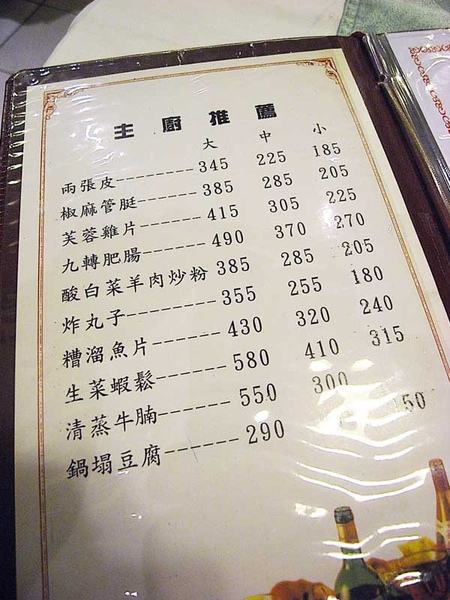 主廚推薦
大 中 小
兩張皮---------345 225 185
椒麻管艇-------385 285 205
芙蓉雞片-------415 305 225
九轉肥腸-------490 370 270
酸白菜羊肉炒粉 385 285 205
炸丸子---------355 255 180
糟溜魚片-------430 320 240
生菜蝦鬆-------580 410 315
清蒸牛腩-------550 300
鍋塌豆腐-------290